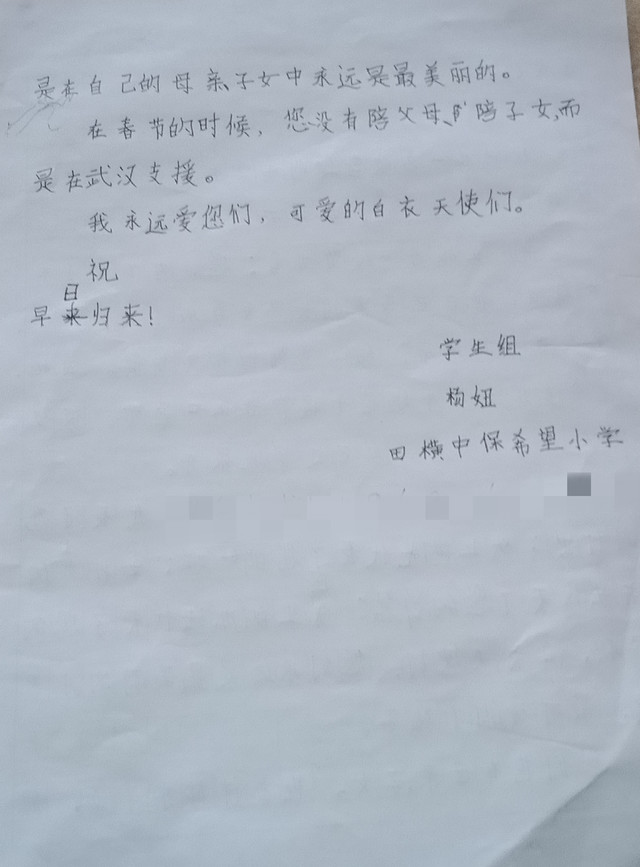 是在自己的母亲、子女中永远是最美丽的。
在春节的时候，您没有陪父母、陪子女，而
是在武汉支援。
我永远爱您们，可爱的白衣天使们。
祝
早日归来！
学生组
杨妞
田横中保希望小学